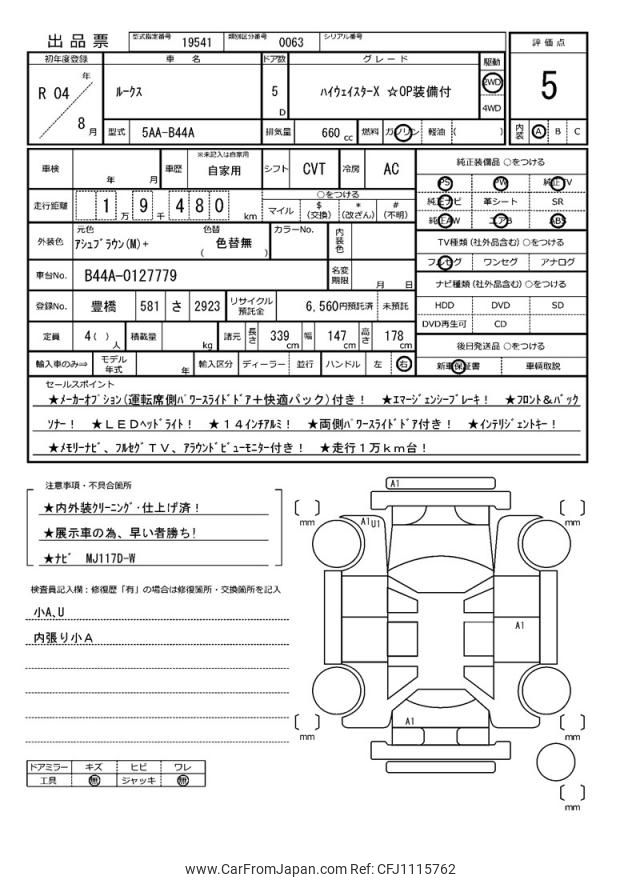 出品票 型式指定番号 19541 類別区分番号 0063 シリアル番号
初年度登録 車名 ドア数 グレード 駆動 評価点
R 04 年 8 月
ルークス 5 D ハイウェイスターX ☆OP装備付 2WD 4WD 5
型式 5AA-B44A 排気量 660 cc 燃料 ガソリン 軽油 ( ) 内装 A B C
車検 年 月 車歴 ※未記入は自家用 自家用 シフト CVT 冷房 AC
走行距離 1 万 9 千 4 8 0 km ○をつける マイル $(交換) *(改ざん) #(不明)
外装色 元色 アシュブラウン(M)+ 色替 ( 色替無 ) カラーNo. 内装色
車台No. B44A-0127779 名変期限 月 日
登録No. 豊橋 581 さ 2923 リサイクル預託金 6,560円預託済 未預託
定員 4( )人 積載量 kg 諸元 長さ 339 cm 幅 147 cm 高さ 178 cm
輸入車のみ⇒ モデル年式 年 輸入区分 ディーラー 並行 ハンドル 左 右
純正装備品 ○をつける
PS PW 純正TV
純正ナビ 革シート SR
純正AW エアB ABS
TV種類(社外品含む) ○をつける
フルセグ ワンセグ アナログ
ナビ種類(社外品含む) ○をつける
HDD DVD SD
DVD再生可 CD
後日発送品 ○をつける
新車保証書 車輌取説
セールスポイント
★メーカーオプション(運転席側パワースライドドア+快適パック)付き! ★エマージェンシーブレーキ! ★フロント&バック
ソナー! ★LEDヘッドライト! ★14インチアルミ! ★両側パワースライドドア付き! ★インテリジェントキー!
★メモリーナビ、フルセグTV、アラウンドビューモニター付き! ★走行1万km台!
注意事項・不具合箇所
★内外装クリーニング・仕上げ済!
★展示車の為、早い者勝ち!
★ナビ MJ117D-W
検査員記入欄:修復歴「有」の場合は修復箇所・交換箇所を記入
小A、U
内張り小A
ドアミラー キズ ヒビ ワレ
工具 無 ジャッキ 無
A1
A1 U1
A1
A1
mm
mm
mm
mm
mm
www.CarFromJapan.com Ref: CFJ1115762